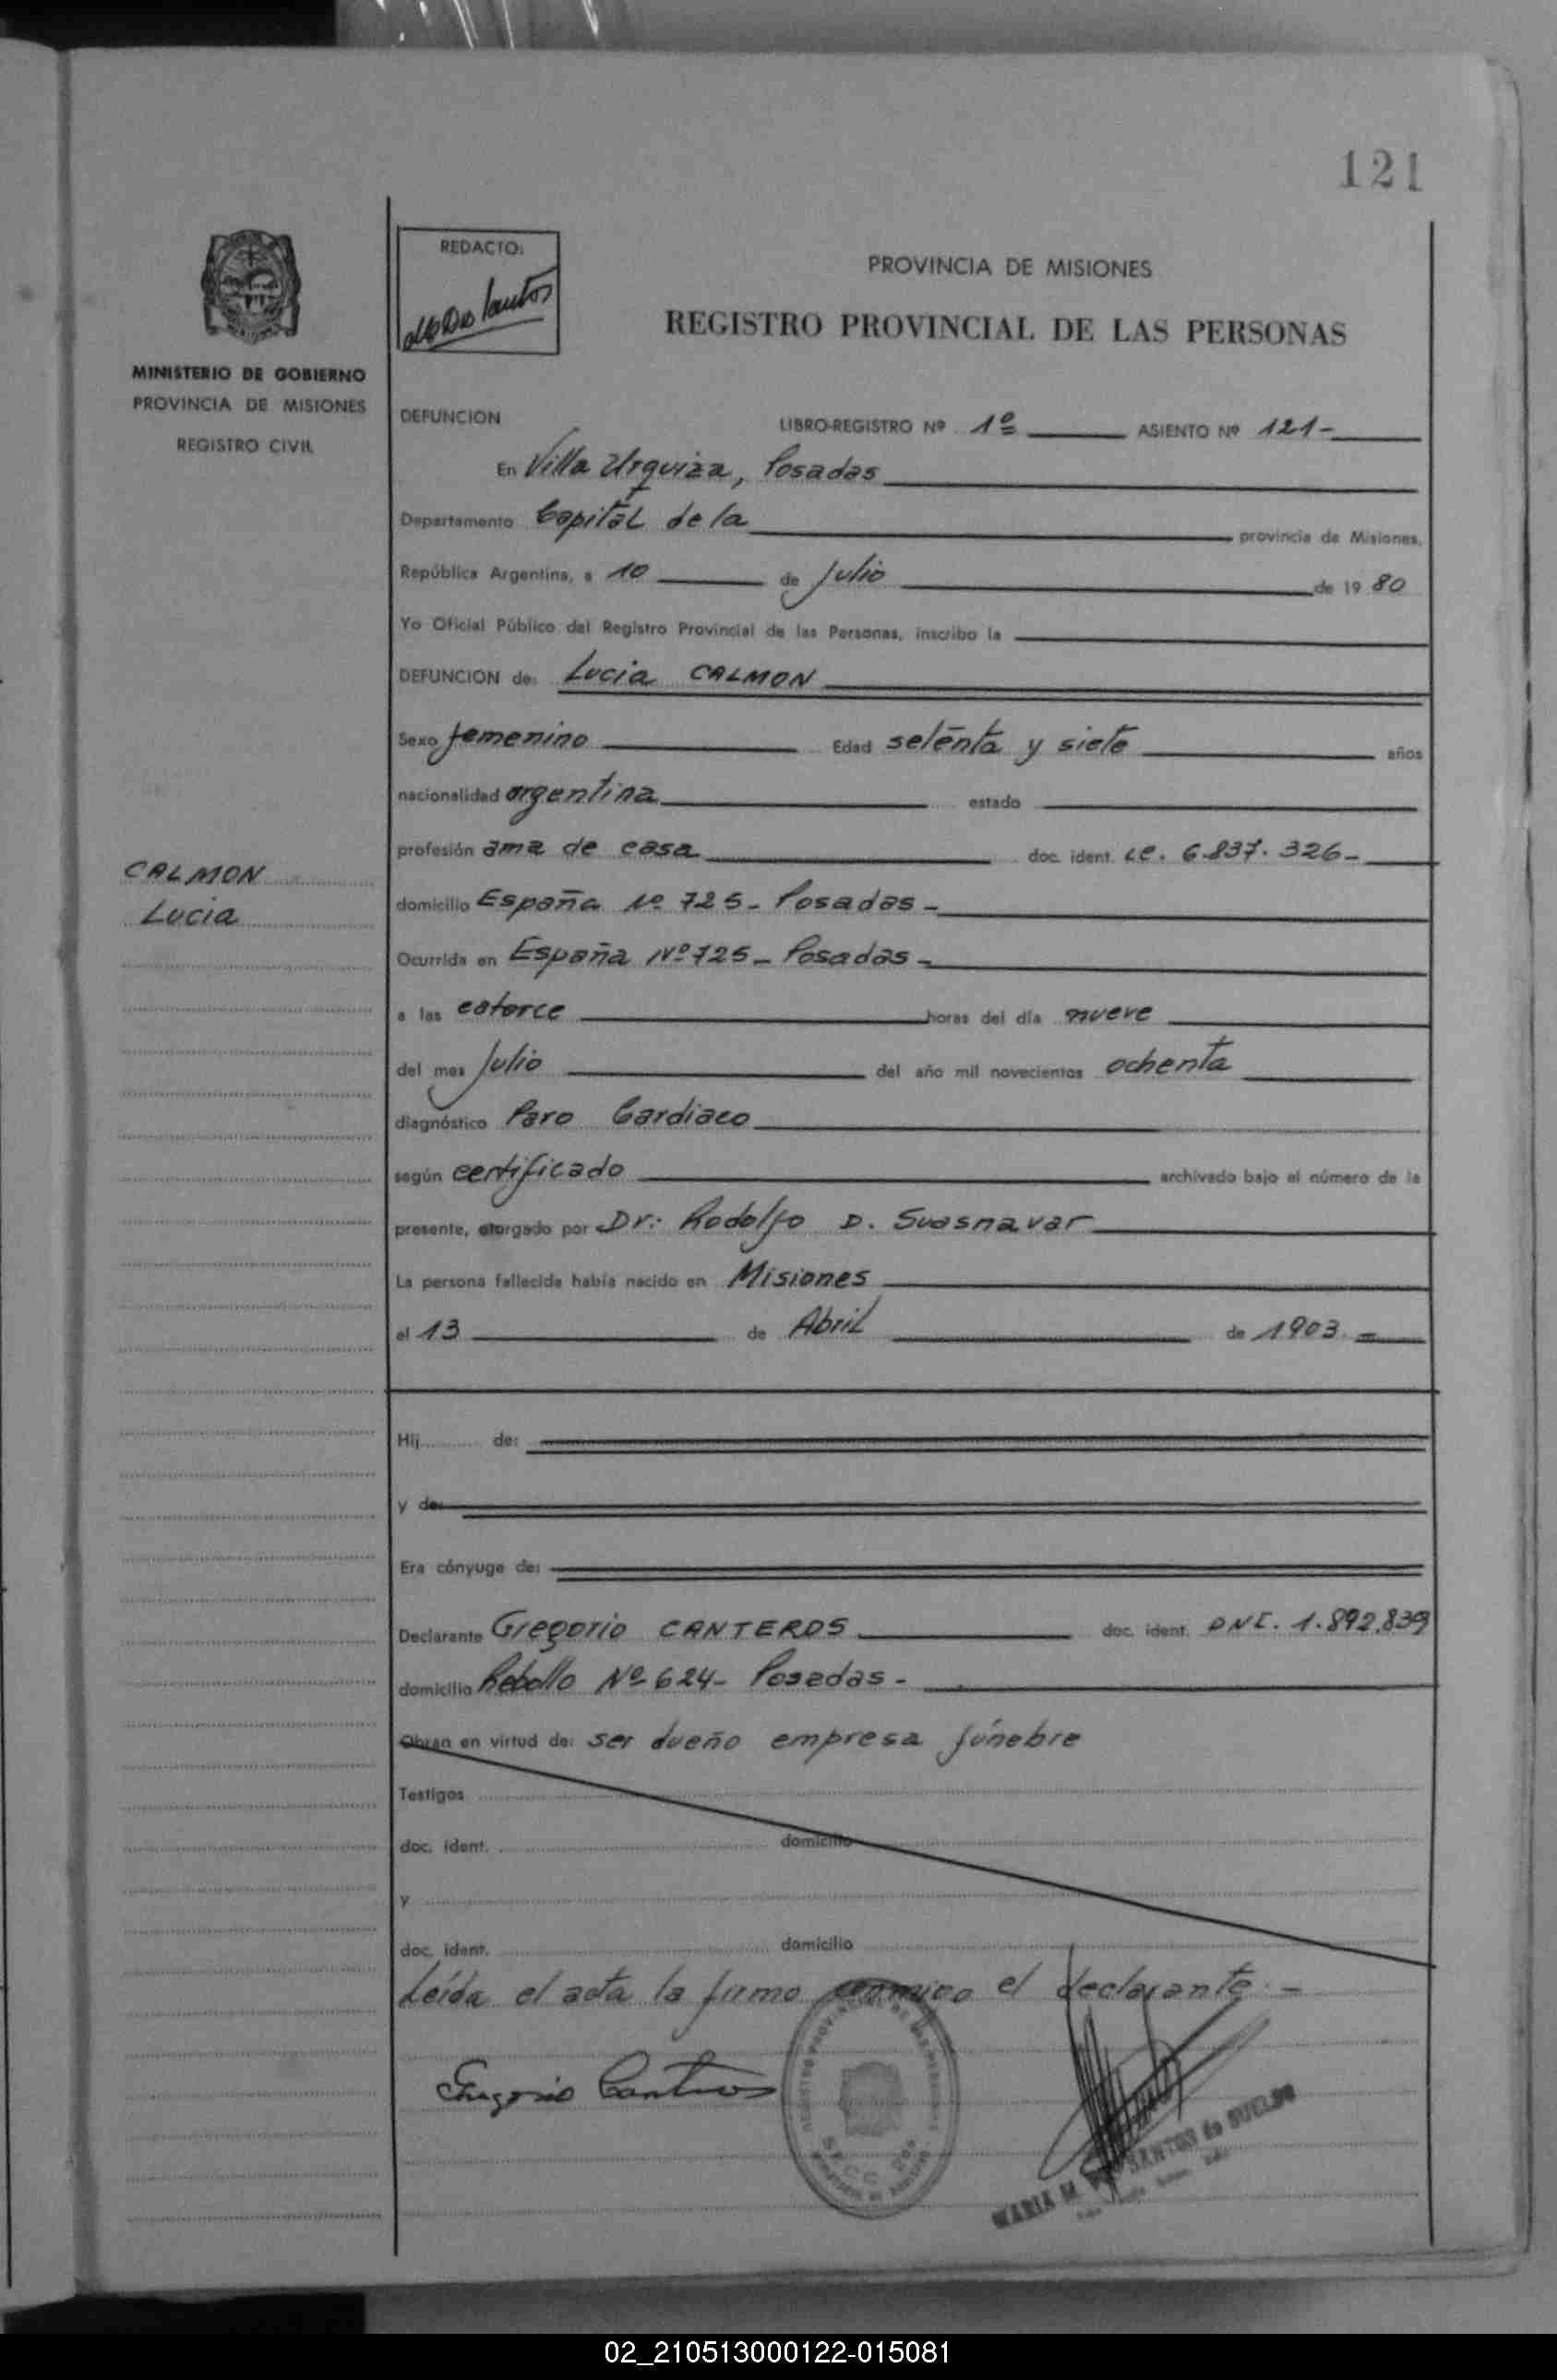 121
REDACTO:
PROVINCIA DE MISIONES
REGISTRO PROVINCIAL DE LAS PERSONAS
MINISTERIO DE GOBIERNO
PROVINCIA DE MISIONES
REGISTRO CIVIL
DEFUNCION LIBRO-REGISTRO Nº 1º ASIENTO Nº 121-
En Villa Urquiza, Posadas
Departamento Capital de la provincia de Misiones.
República Argentina, a 10 de Julio de 1980
Yo Oficial Público del Registro Provincial de las Personas, inscribo la
DEFUNCION de: Lucia CALMON
Sexo femenino Edad setenta y siete años
nacionalidad argentina estado
CALMON
Lucia
profesión ama de casa doc. ident. LC. 6.837.326-
domicilio España Nº 725- Posadas-
Ocurrida en España Nº 725- Posadas-
a las catorce horas del día nueve
del mes Julio del año mil novecientos ochenta
diagnóstico Paro Cardiaco
según certificado archivado bajo el número de la
presente, otorgado por Dr: Rodolfo D. Suasnavar
La persona fallecida había nacido en Misiones
el 13 de Abril de 1903.-
Hij de:
y de:
Era cónyuge de:
Declarante Gregorio CANTEROS doc. ident. DNI. 1.892.839
domicilio Rebollo Nº 624- Posadas-
Obran en virtud de: ser dueño empresa fúnebre
Testigos
doc. ident. domicilio
y
doc. ident. domicilio
Leída el acta la firma conmigo el declarante.-
Gregorio Canteros
MARIA M. SANTOS de
02_210513000122-015081